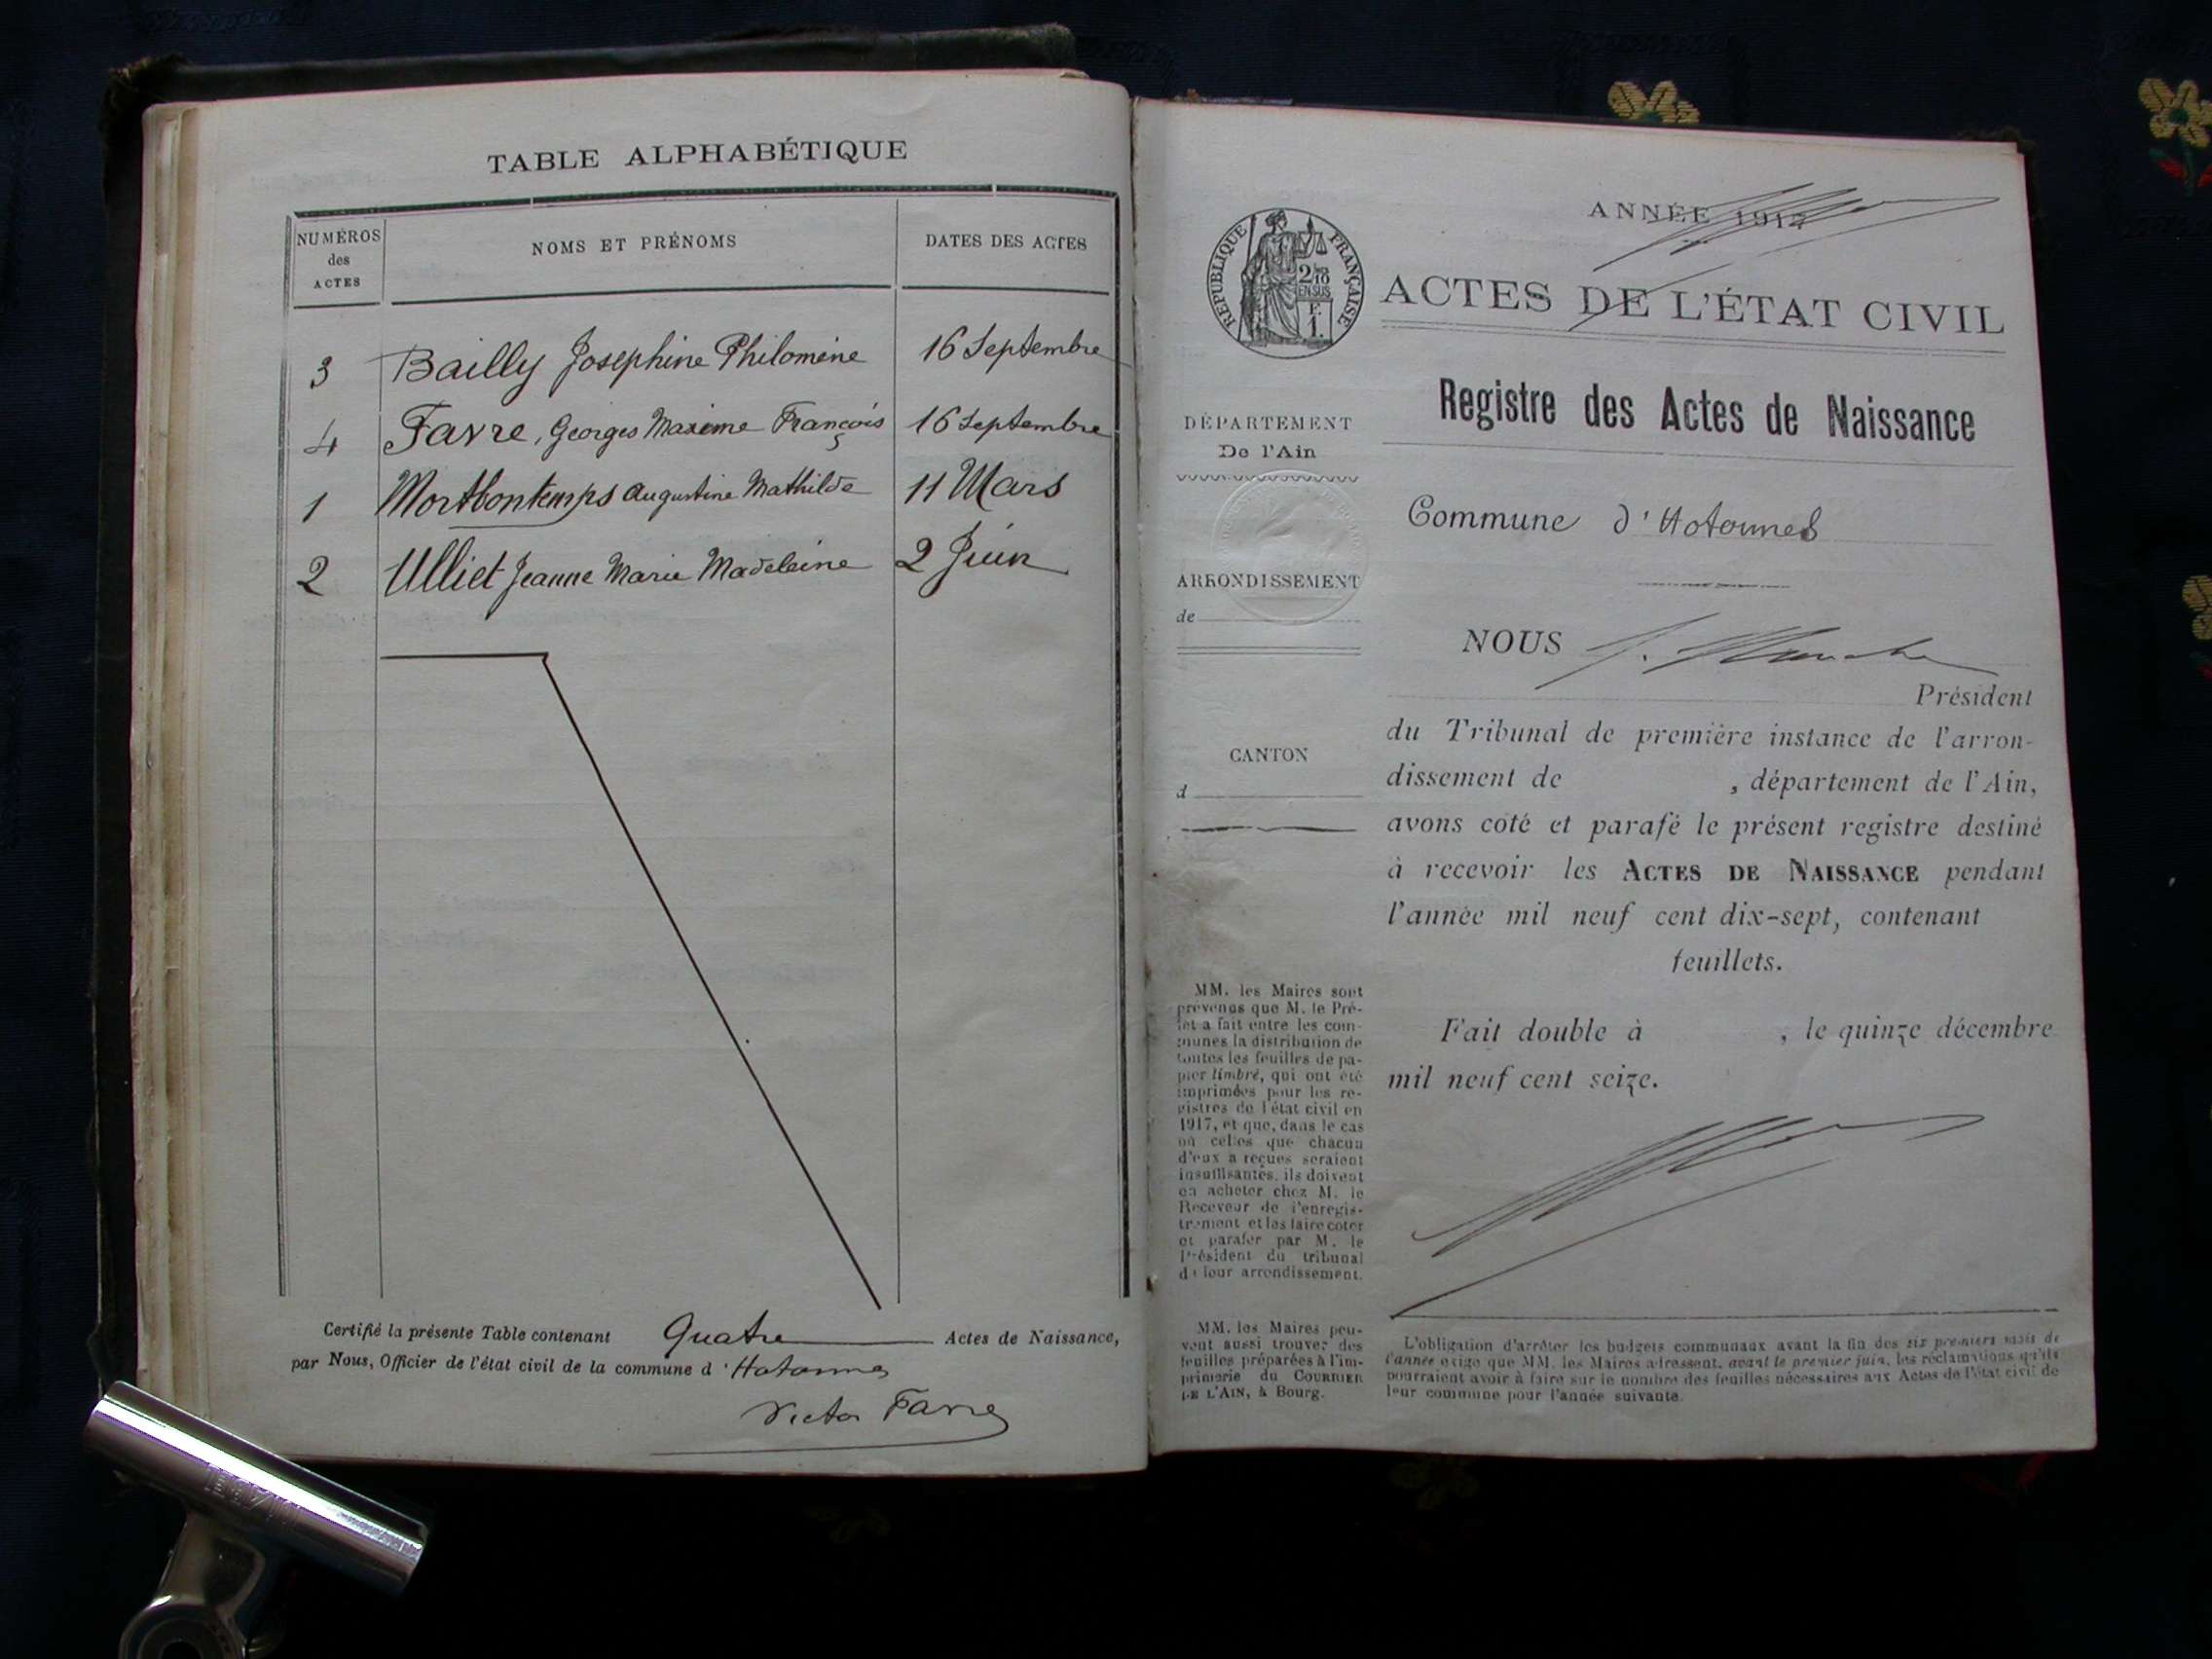 TABLE ALPHABÉTIQUE
NUMÉROS
des
ACTES
NOMS ET PRÉNOMS
DATES DES ACTES
3 Bailly Josephine Philomène 16 Septembre
4 Favre, Georges Maxime François 16 Septembre
1 Mortbontemps Augustine Mathilde 11 Mars
2 Ulliet Jeanne Marie Madeleine 2 Juin
Certifié la présente Table contenant Quatre Actes de Naissance,
par Nous, Officier de l'état civil de la commune d'Hotonnes
Victor Favre
ANNÉE 1917
RÉPUBLIQUE FRANÇAISE
2/10
EN SUS
F.
1.
ACTES DE L'ÉTAT CIVIL
Registre des Actes de Naissance
DÉPARTEMENT
De l'Ain
Commune d'Hotonnes
ARRONDISSEMENT
de
NOUS
Président
du Tribunal de première instance de l'arron-
dissement de , département de l'Ain,
avons coté et parafé le présent registre destiné
à recevoir les ACTES DE NAISSANCE pendant
l'année mil neuf cent dix-sept, contenant
feuillets.
Fait double à , le quinze décembre
mil neuf cent seize.
CANTON
d
MM. les Maires sont
prévenus que M. le Pré-
fet a fait entre les com-
munes la distribution de
toutes les feuilles de pa-
pier timbré, qui ont été
imprimées pour les re-
gistres de l'état civil en
1917, et que, dans le cas
où celles que chacun
d'eux a reçues seraient
insuffisantes, ils doivent
en acheter chez M. le
Receveur de l'enregis-
trement et les faire coter
et parafer par M. le
Président du tribunal
de leur arrondissement.
MM. les Maires peu-
vent aussi trouver des
feuilles préparées à l'im-
primerie du COURRIER
DE L'AIN, à Bourg.
L'obligation d'arrêter les budgets communaux avant la fin des six premiers mois de
l'année exige que MM. les Maires adressent, avant le premier juin, les réclamations qu'ils
pourraient avoir à faire sur le nombre des feuilles nécessaires aux Actes de l'état civil de
leur commune pour l'année suivante.